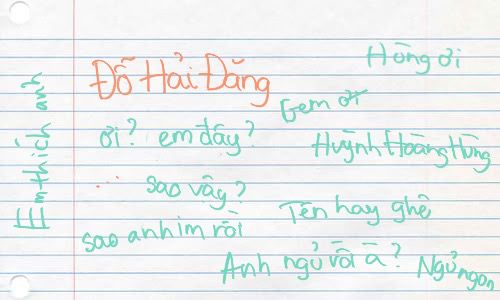 Em thích anh
Hùng ơi
Đỗ Hải Đăng
Gem ơi
ơi? em đây?
Huỳnh Hoàng Hùng
...
sao vậy?
Tên hay ghê
sao anh im rồi
Anh ngủ rồi à?
Ngủ ngon